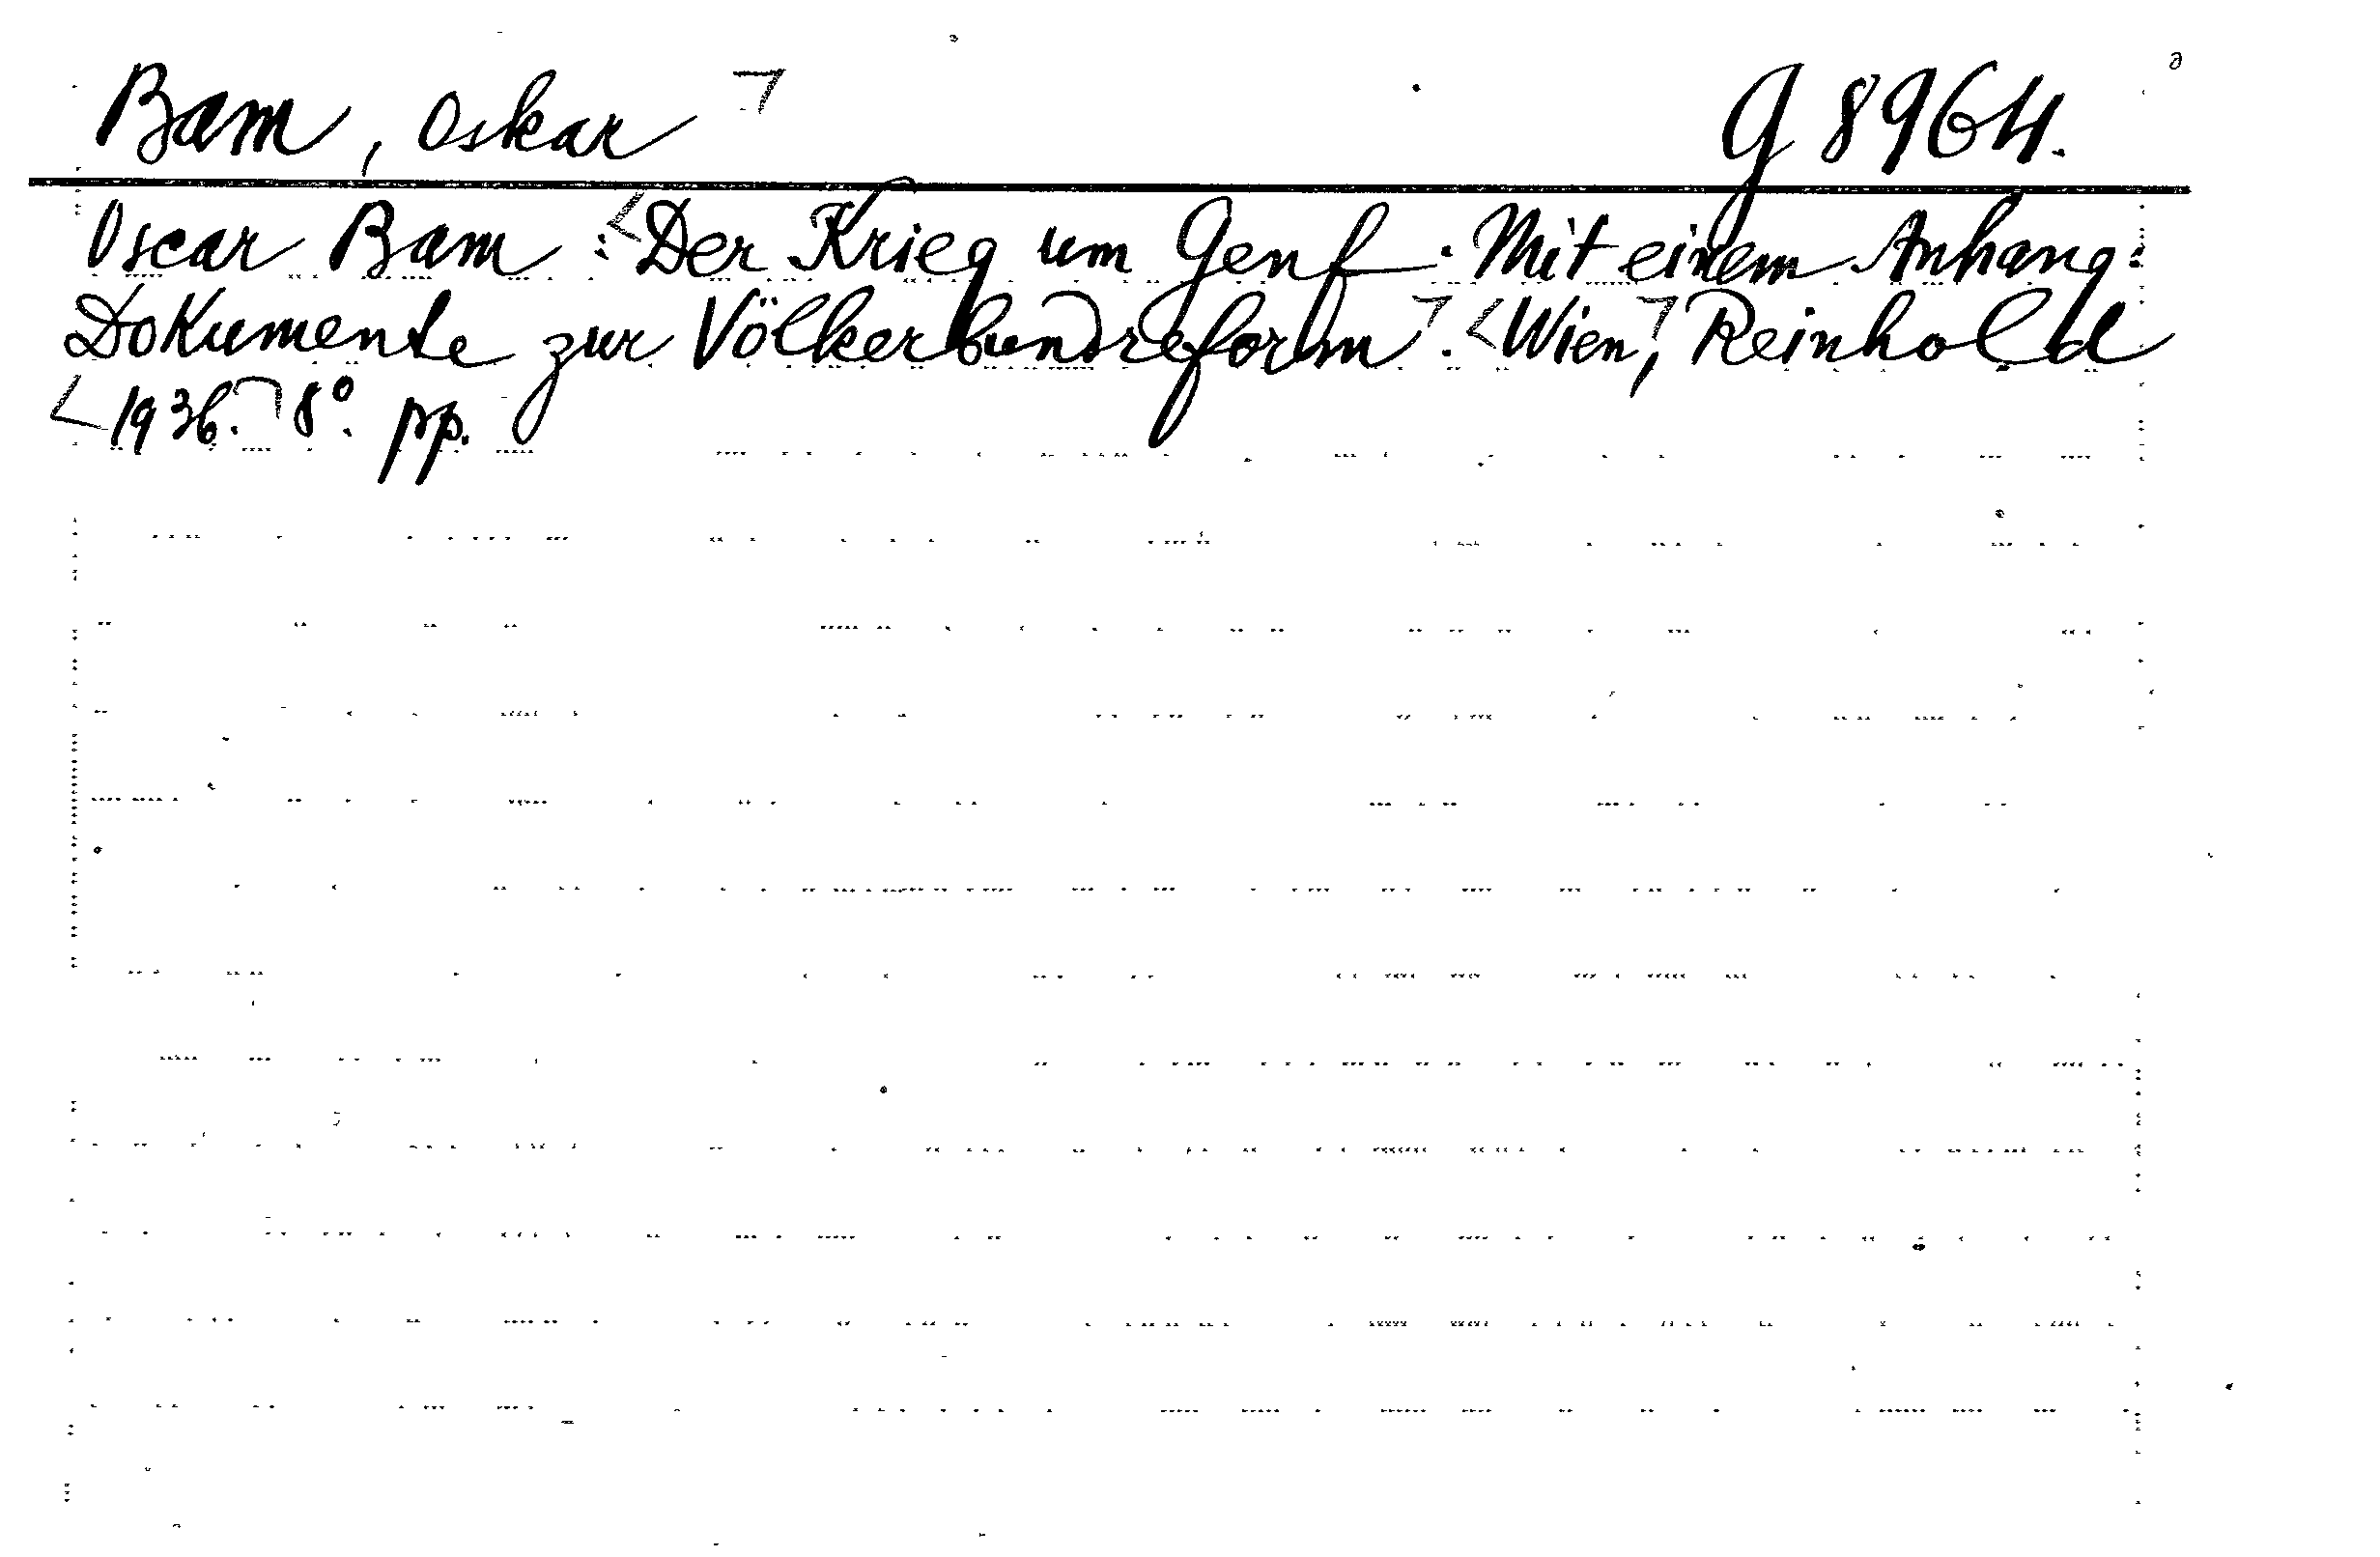 Bam, Oskar ⁊ G 8964.
Oscar Bam: <Der Krieg um Genf. Mit einem Anhang:
Dokumente zur Völkerbundreform⁊. <Wien⁊, Reinhold
<1936.⁊ 8°. pp.